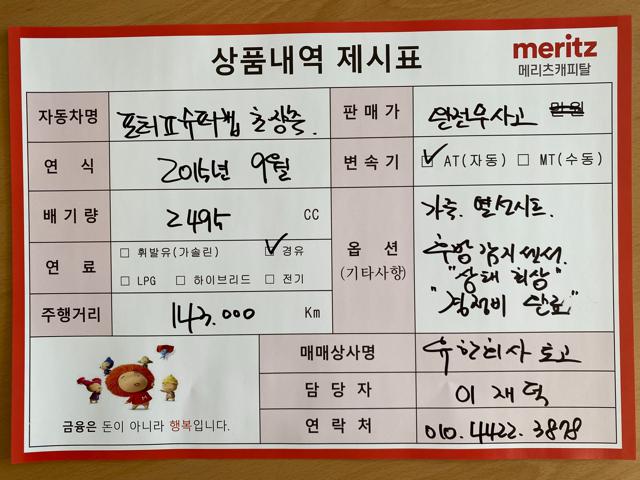 상품내역 제시표
meritz
메리츠캐피탈
자동차명 포터II슈퍼캡 초장축.
판매가 완전무사고 만원
연 식 2015년 9월
변속기 ☑ AT(자동) ☐ MT(수동)
배기량 2495 CC
옵 션
(기타사항)
가죽. 열선시트.
후방감지센서.
"상태 최상"
"경정비 완료"
연 료
☐ 휘발유(가솔린) ☑ 경유
☐ LPG ☐ 하이브리드 ☐ 전기
주행거리 143.000 Km
매매상사명 유한회사
담 당 자 이재덕
연 락 처 010.4422.3878
금융은 돈이 아니라 행복입니다.